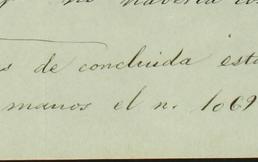 no haberla
s de concluida est
manos el n. 1069